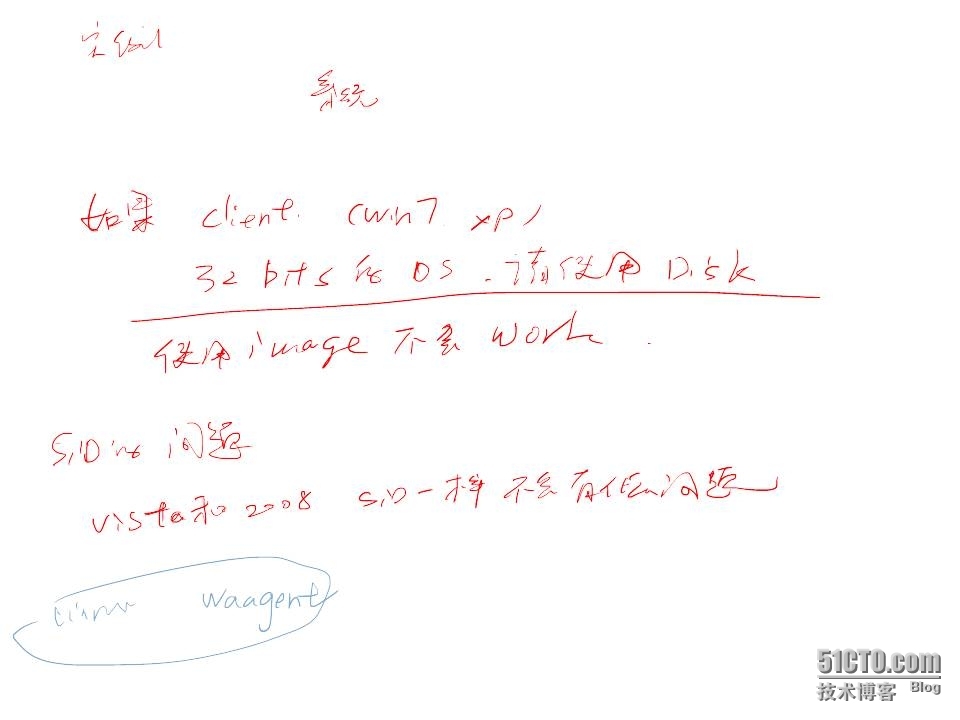 实例
系统
如果 client. (win7 xp)
32 bits 的 OS . 请使用 Disk
使用 image 不会 work .
SID的 问题
vista和 2008 SID一样 不会有任何问题
waagent
51CTO.com
技术博客 Blog